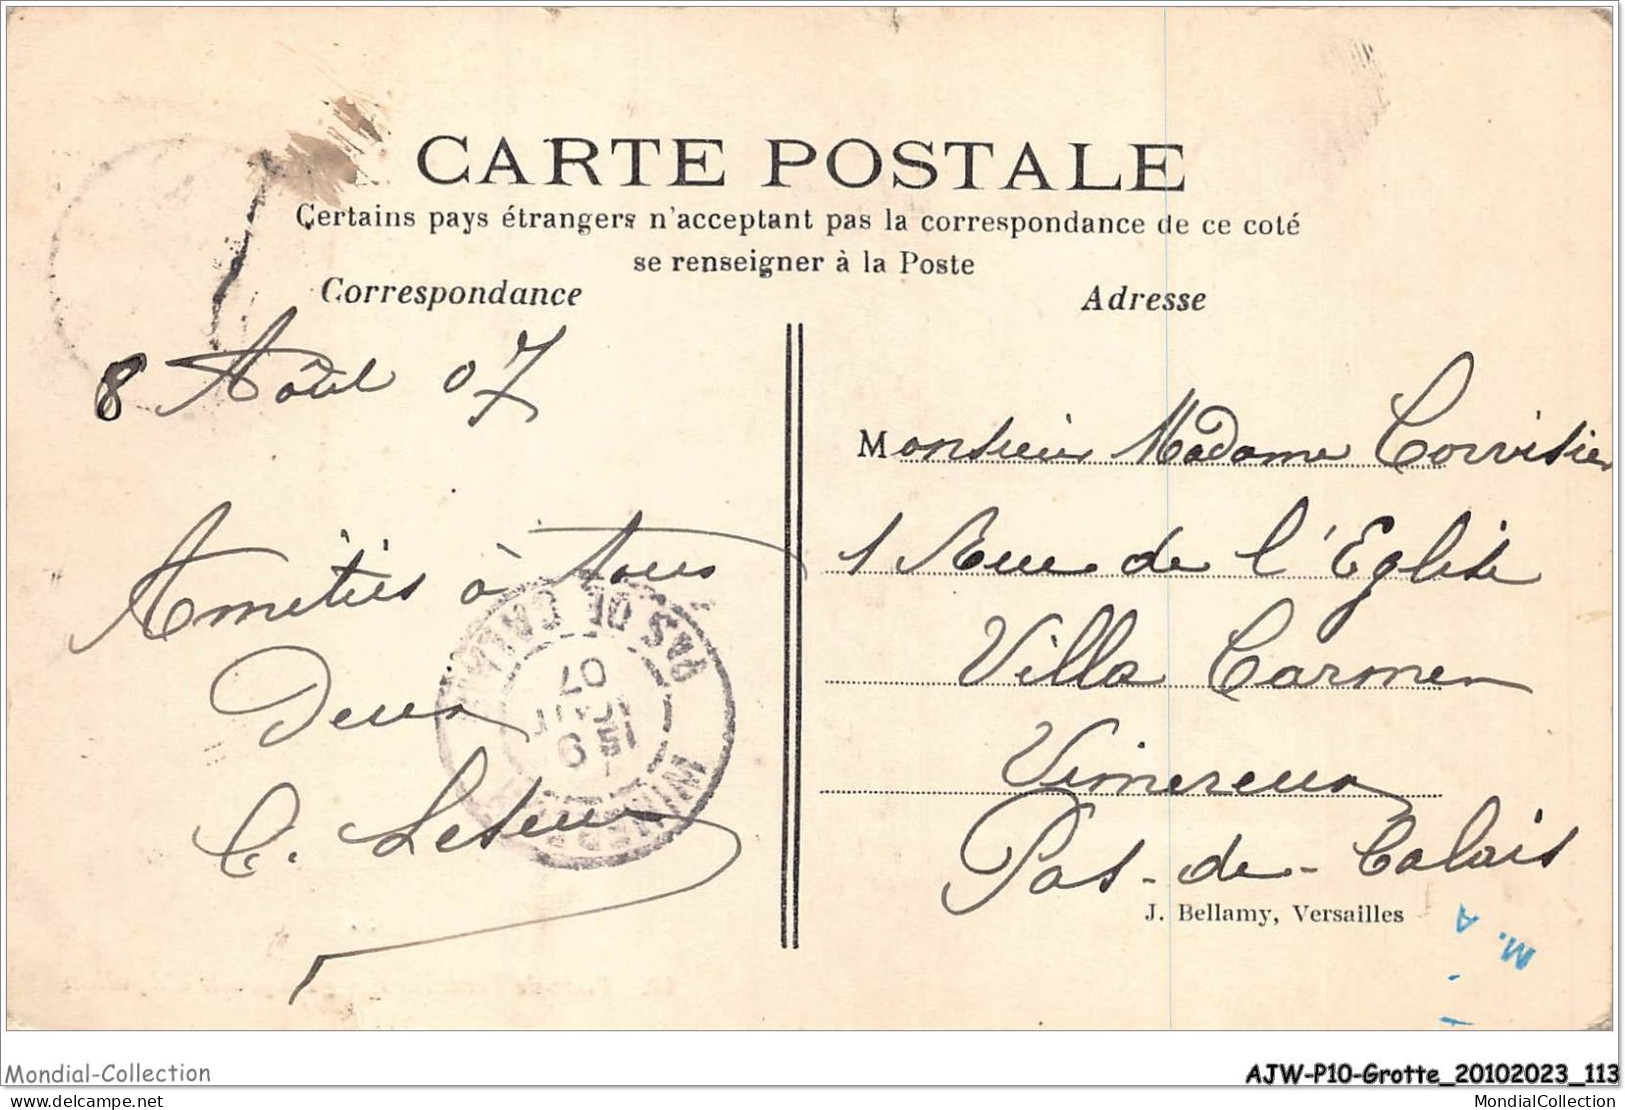 CARTE POSTALE
Certains pays étrangers n'acceptant pas la correspondance de ce coté
se renseigner à la Poste
Correspondance
Adresse
8 Août 07
Amitiés à tous
Deux
C. Leseur
PAS DE CALAIS
15 9
AOUT
07
Monsieur Madame Corvisier
1 Rue de l'Eglise
Villa Carmen
Vimereux
Pas-de-Calais
J. Bellamy, Versailles
Mondial-Collection
AJW-P10-Grotte_20102023_113
delcampe.net
MondialCollection